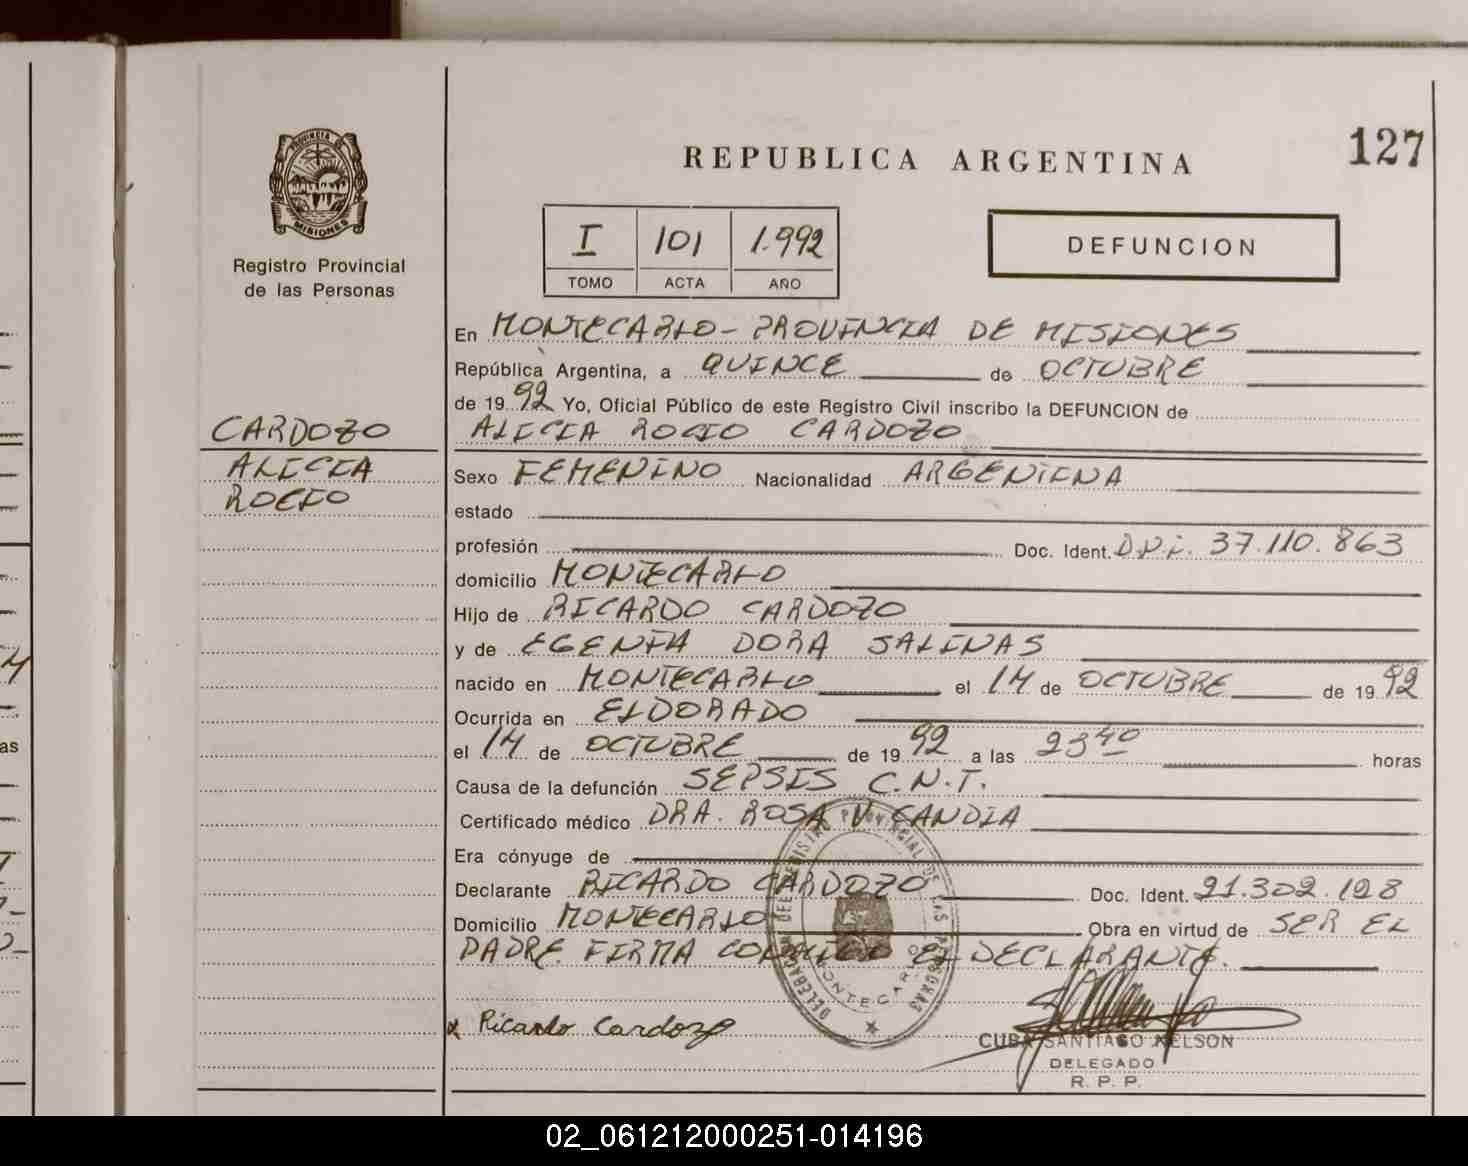 127
REPUBLICA ARGENTINA
PROVINCIA DE
MISIONES
Registro Provincial
de las Personas
I 101 1.992
TOMO ACTA AÑO
DEFUNCION
En MONTECARLO - PROVINCIA DE MISIONES
República Argentina, a QUINCE de OCTUBRE
de 1992 Yo, Oficial Público de este Registro Civil inscribo la DEFUNCION de
CARDOZO
ALICIA
ROCIO
ALICIA ROCIO CARDOZO
Sexo FEMENINO Nacionalidad ARGENTINA
estado
profesión Doc. Ident. D.N.i. 37.110.863
domicilio MONTECARLO
Hijo de RICARDO CARDOZO
y de EGENIA DORA SALINAS
nacido en MONTECARLO el 14 de OCTUBRE de 1992
Ocurrida en ELDORADO
el 14 de OCTUBRE de 1992 a las 23 40 horas
Causa de la defunción SEPSIS C.N.T.
Certificado médico DRA. ROSA V. CANDIA
Era cónyuge de
Declarante RICARDO CARDOZO Doc. Ident. 21.302.128
Domicilio MONTECARLO Obra en virtud de SER EL
PADRE. FIRMA CONMIGO EL DECLARANTE.
DELEGACION DEL REGISTRO PROVINCIAL DE LAS PERSONAS
MONTECARLO
x Ricardo Cardozo
CUBA SANTIAGO NELSON
DELEGADO
R. P. P.
as
02_061212000251-014196